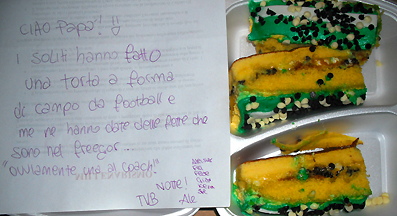 CIAO Papà!
I soliti hanno fatto
una torta a forma
di campo da football e
me ne hanno date delle fette che
sono nel freezer...
"ovviamente una al coach!"
NOTTE!
TVB Ale